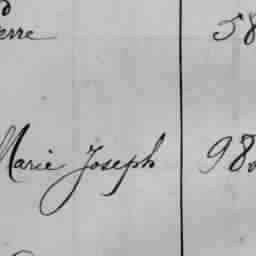 erre 58
Marie Joseph 98